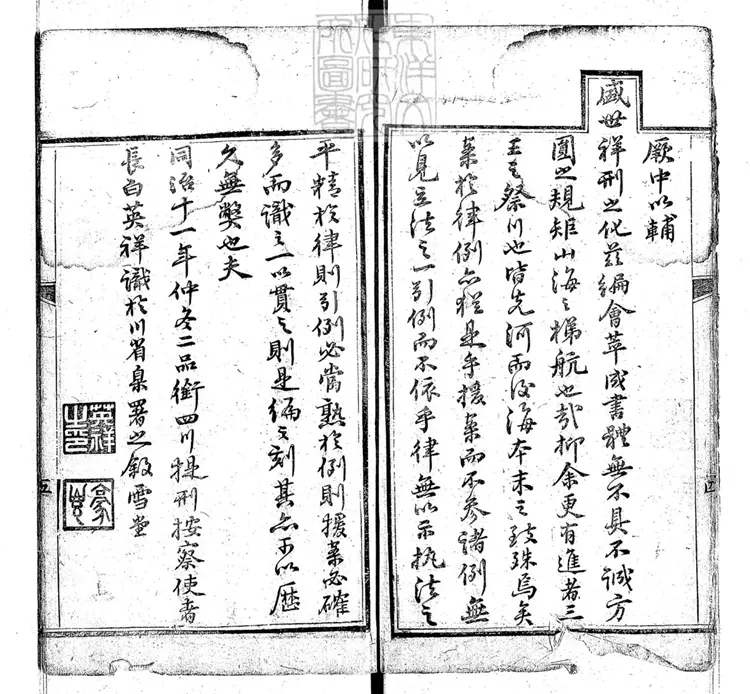 厥中以輔
盛世祥刑之化茲編會萃成書體無不具不誠方
圓之規矩山海之梯航也哉抑余更有進者三
王之祭川也皆先河而後海本末之致殊焉矣
案於律例亦猶是乎援案而不參諸例無
以見立法之一引例而不依乎律無以示執法之
平精於律則引例必當熟於例則援案必確
多而識之一以貫之則是編之刻其亦可以歷
久無弊也夫
同治十一年仲冬二品銜四川提刑按察使者
長白英祥識於川省臬署之敘雪堂
英祥之印